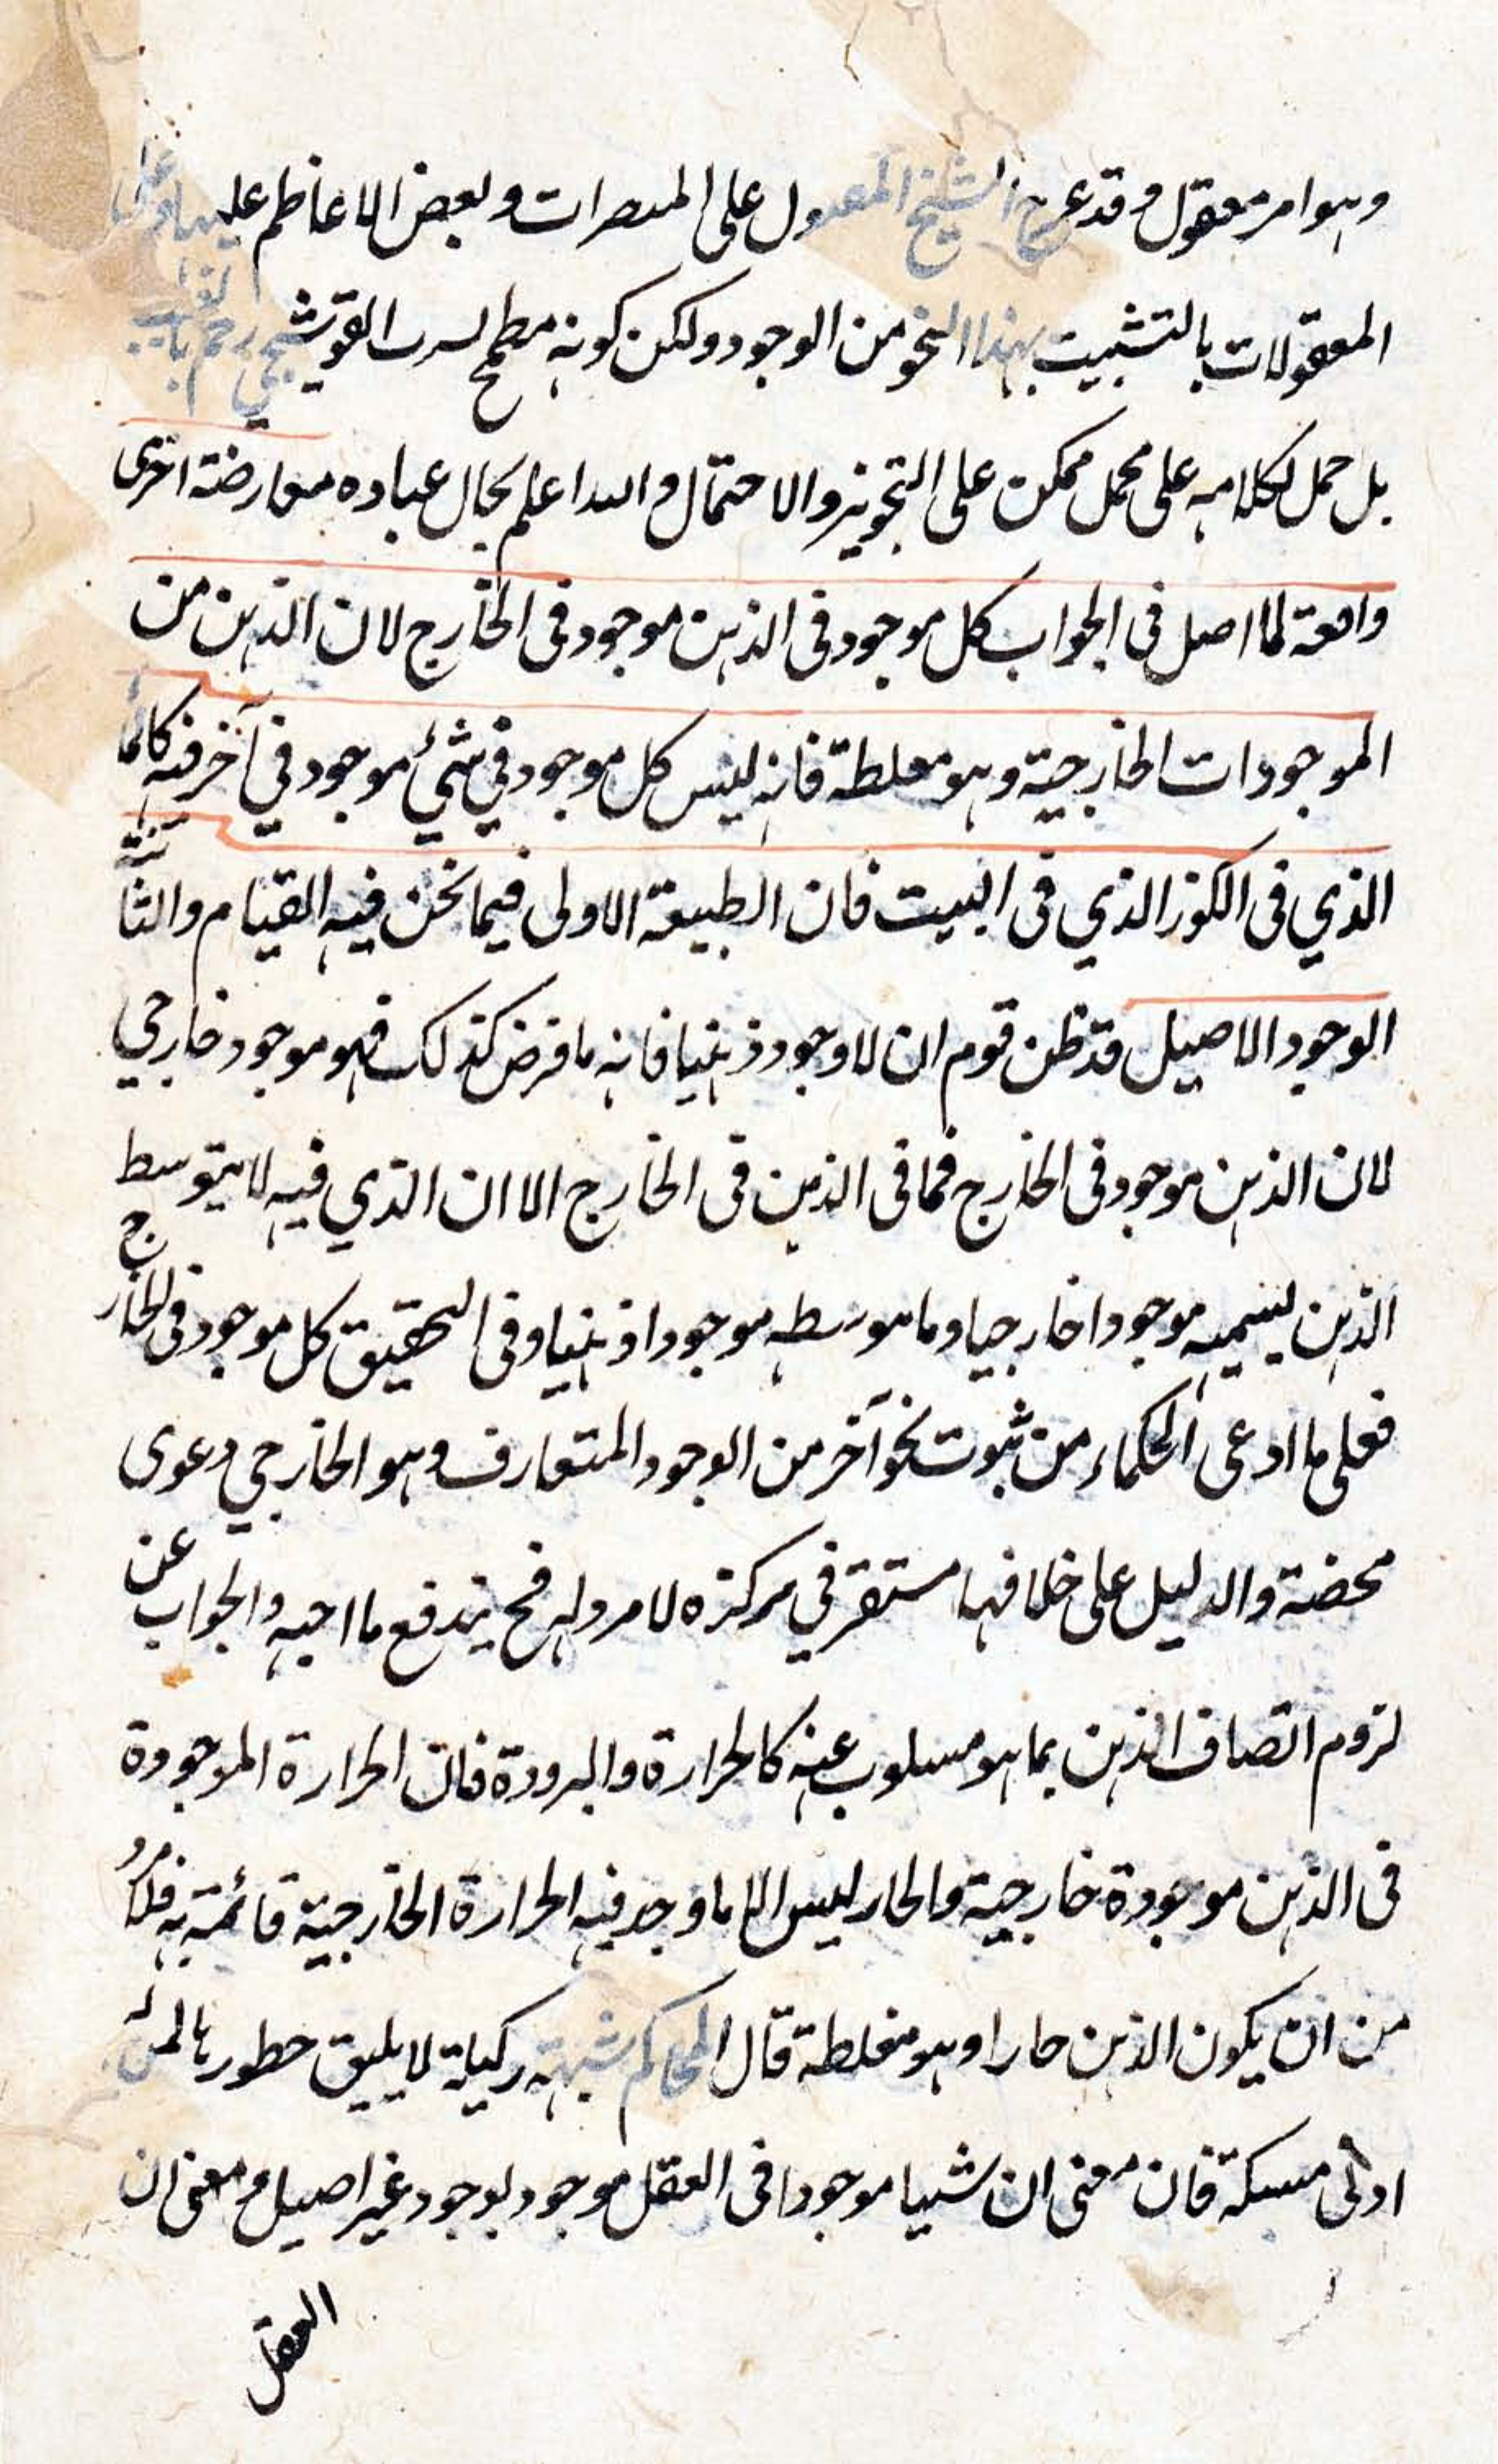 وهو امر معقول وقد عرج الشيخ المعول على المبصرات وبعض الاعاظم عليها وعلى
المعقولات بالتشبيت بهذا النحو من الوجود ولكن كونه مطمح القوشجي رحم بالغيب
بل حمل لكلامه على محمل ممكن على التجويز والاحتمال والله اعلم بحال عباده معارضة اخرى
واهعة لما اصل فى الجواب كل موجود فى الذهن موجود فى الخارج لان الذهن من
الموجودات الخارجية وهو معلطة فانه ليس كل موجود في شئ موجود في آخر فيه كالما
الذي فى الكوز الذي فى البيت فان الطبيعة الاولى فيما نحن فيه القيام والثانية
الوجود الاصيل قد ظن قوم ان لا وجود ذهنيا فانه ما فرض كذلك فهو موجود خارجي
لان الذهن موجود فى الخارج فما فى الذهن فى الخارج الا ان الذي فيه لا يتوسط
الذهن يسميه موجودا خارجيا وما هو بوسطه موجودا ذهنيا وفى التحقيق كل موجود فى الخارج
فعلى ما ادعى الحكماء من ثبوت نحو آخر من الوجود المتعارف وهو الخارجي دعوى
محضة والدليل على خلافها مستقر في مركزه لا مرد له فح يندفع ما اجيبه والجواب عن
لزوم اتصاف الذهن بما هو مسلوب عنه كالحرارة والبرودة فان الحرارة الموجودة
فى الذهن موجودة خارجية والحار ليس الا ما وجد فيه الحرارة الخارجية قائمة به فلا مرد
من ان يكون الذهن حارا وهو مغلطة قال المحاكم شبهة ركيكة لا يليق خطورها لمن له
ادنى مسكة فان معنى ان شيئا موجودا فى العقل موجود بوجود غير اصيل ومعنى ان
العقل